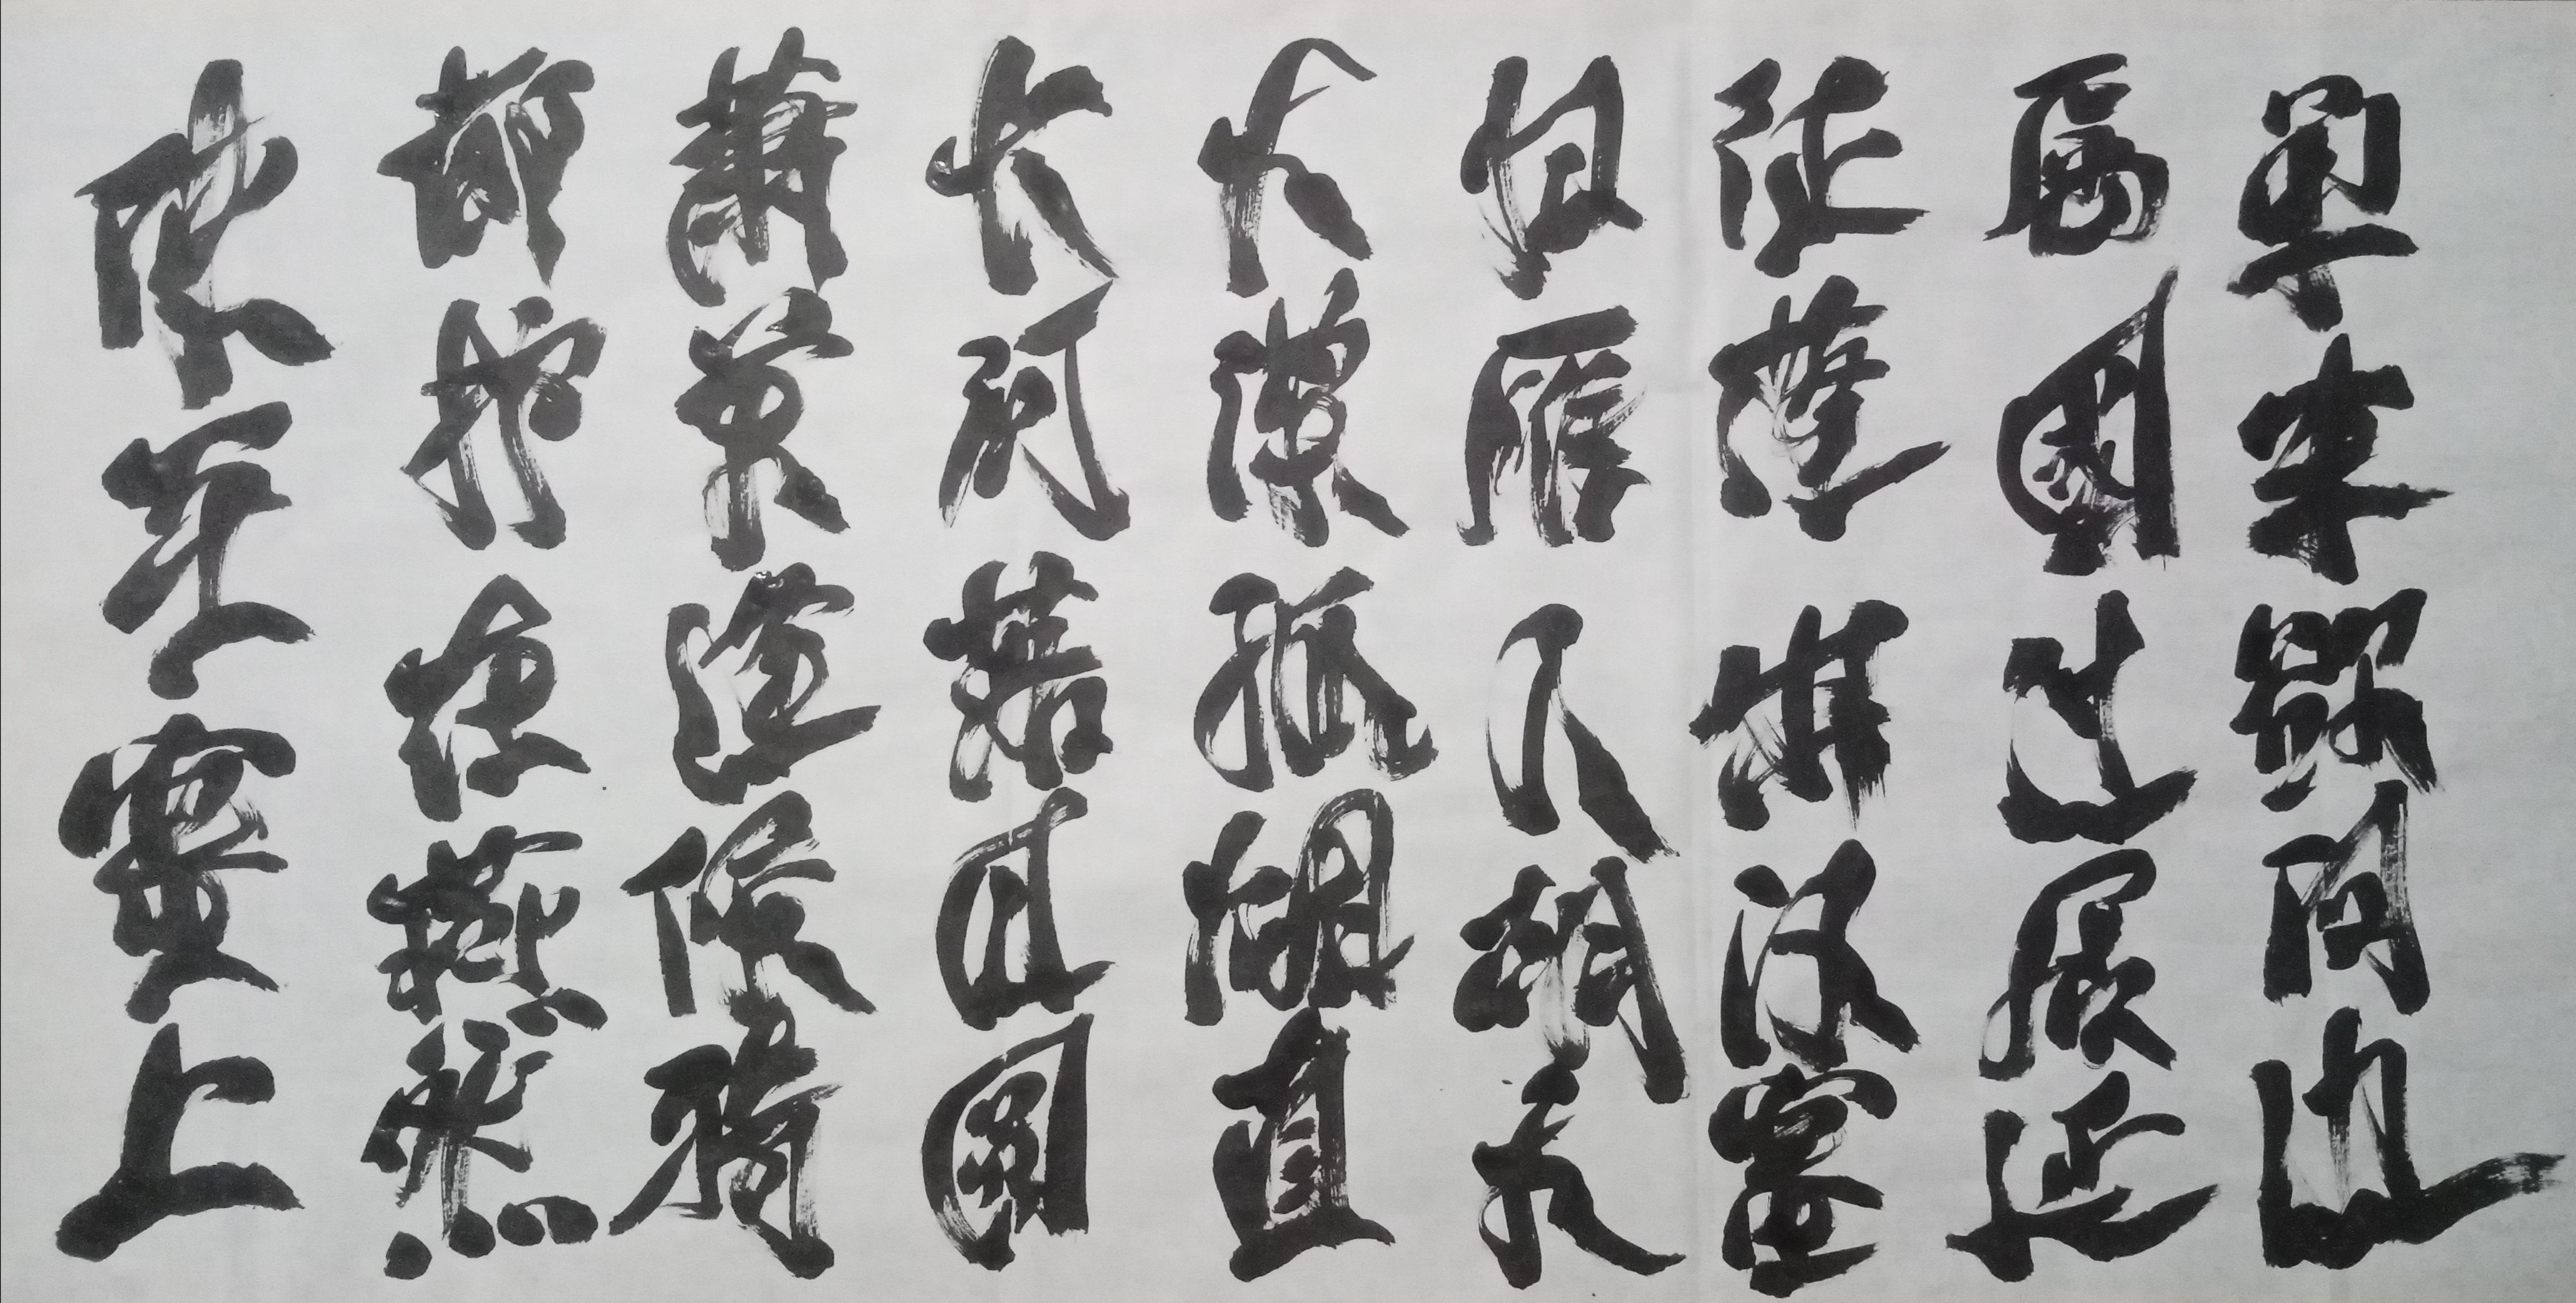 單車欲問邊
屬國過居延
征蓬出漢塞
歸雁入胡天
大漠孤煙直
長河落日圓
蕭關逢候騎
都護在燕然
使至塞上